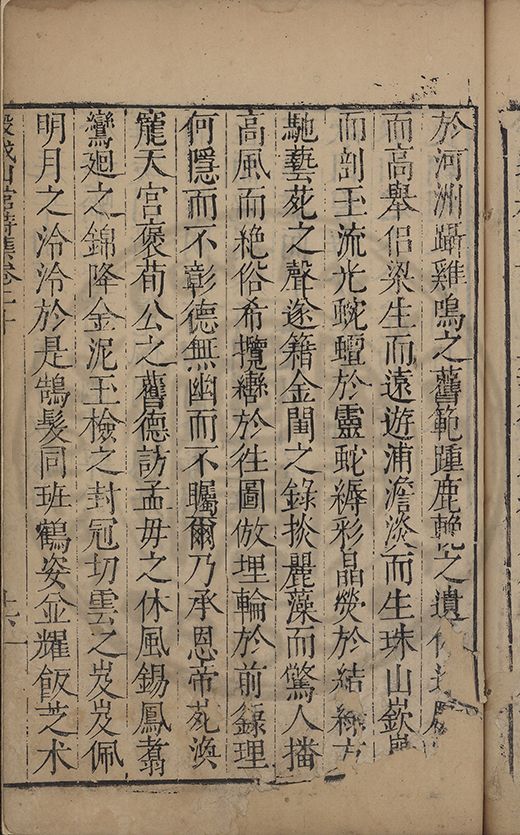 於河洲躡雞鳴之舊範踵鹿輓之遺
而高舉侣梁生而遠遊浦澹淡而生珠山嶔
而剖玉流光蜿蟺於靈蛇縟彩晶熒於結綠
馳藝苑之聲遂籍金閨之錄掞麗藻而驚人播
高風而絶俗希攬轡於徃圖倣埋輪於前錄理
何隱而不彰德無幽而不矚爾乃承恩帝苑渙
寵天宮褒荀公之舊德訪孟毋之休風錫鳳翥
鸞廻之錦降金泥玉檢之封冠切雲之岌岌佩
明月之泠泠於是鵠髮同班鶴姿並耀飯芝术
穀城山館詩集卷二十